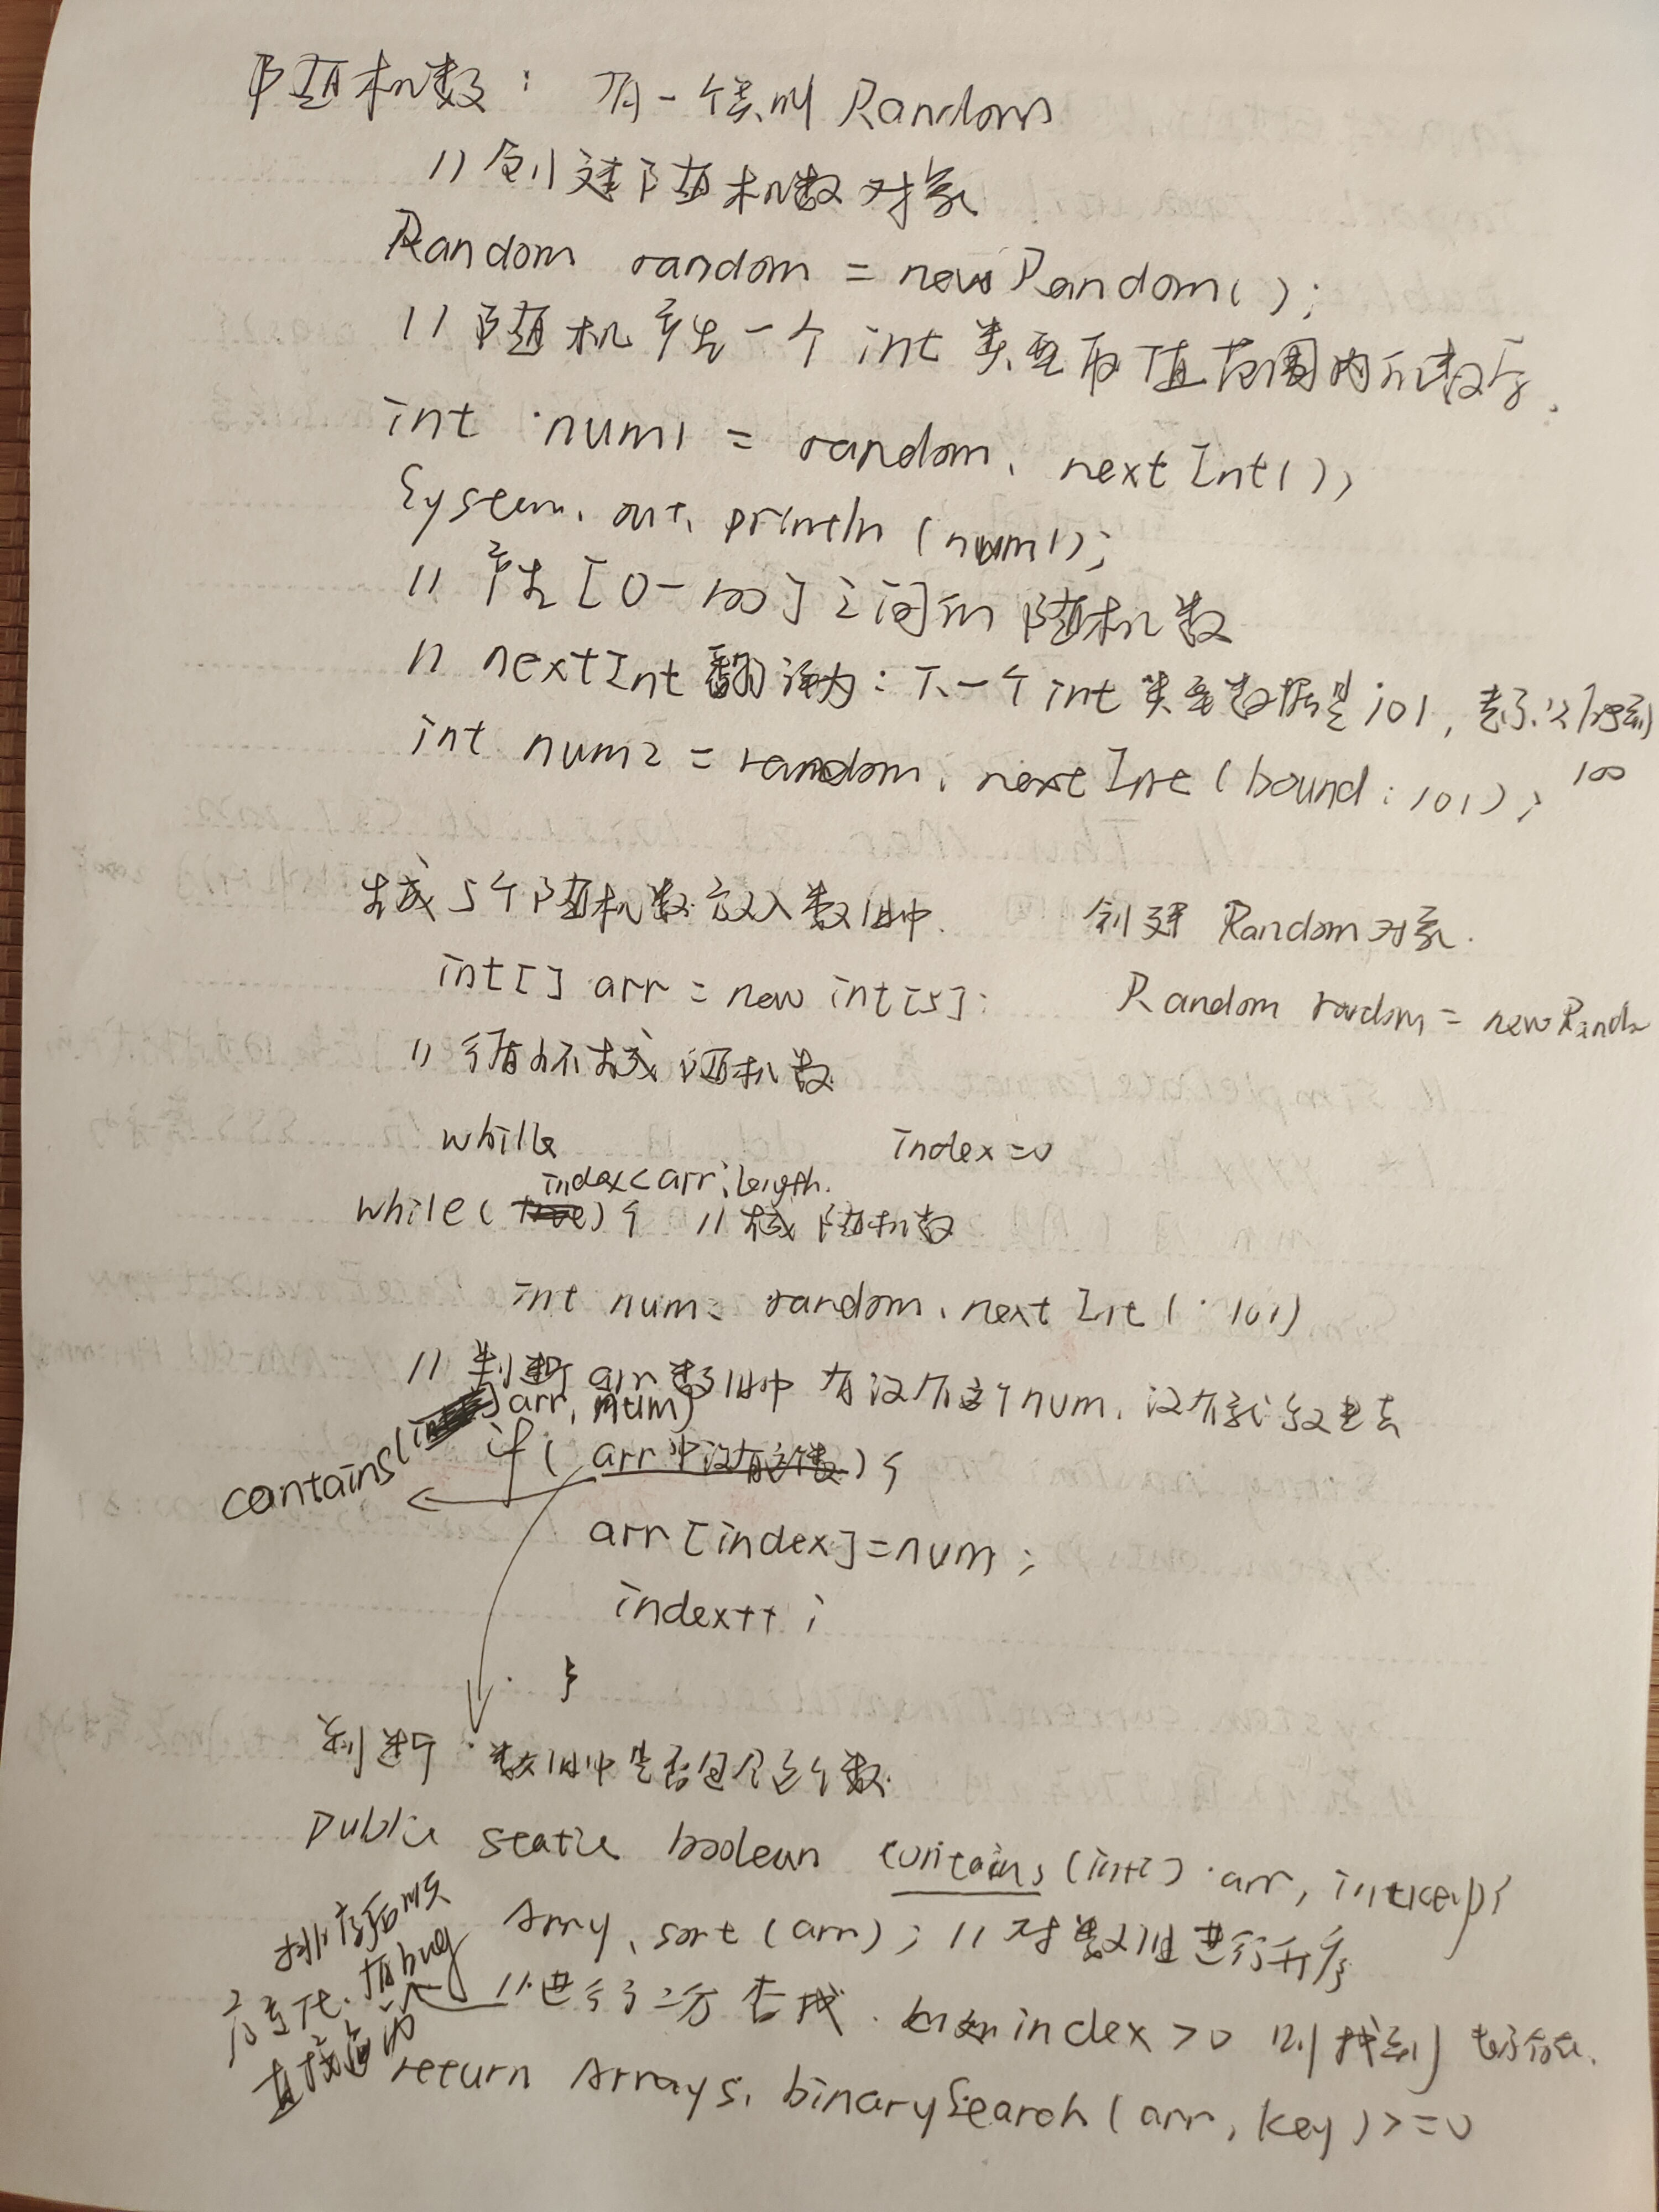 随机数: 有一个类叫 Random
// 创建随机数对象
Random random = new Random();
// 随机产生一个 int 类型取值范围内的数字.
int num1 = random. nextInt();
System. out. println (num1);
// 产生 [0-100] 之间的随机数
// nextInt 翻译为: 下一个 int 类型数据是 101, 表示只能取到
100
int num2 = random. nextInt (bound: 101);
生成 5个随机数放入数组中.
创建 Random 对象.
int[] arr = new int[5];
Random random = new Rando
// 循环生成随机数
while
index=0
index<arr.length.
while( true) { // 生成随机数
int num = random. nextInt ( 101)
// 判断 arr 数组中有没有这个num, 没有就放进去
contains(int[] arr, num)
if ( arr中没有这个数) {
arr [index]=num;
index++;
}
判断 数组中是否包含这个数.
public static boolean contains (int[] arr, int key){
Array. sort (arr); // 对数组进行升序
排序后
有bug
//进行二分查找. 如果 index >0 则找到
return Arrays. binarySearch (arr, key) >=0